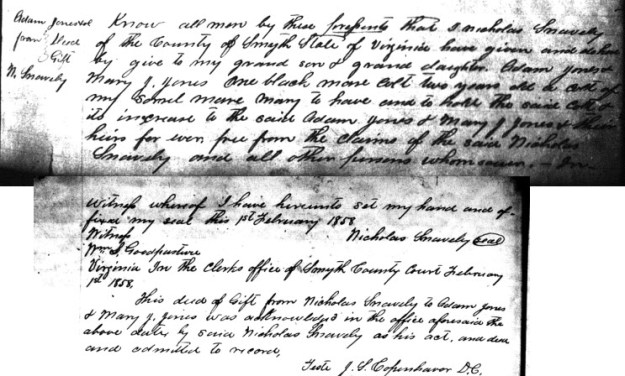 Adam Jones &c
from } Deed
Gift
N. Snavely
Know all men by these presents that I Nicholas Snavely
of the County of Smyth State of Virginia have given and do here
by give to my grand son & grand daughter Adam Jones &
Mary J. Jones One black mare colt two years old a colt of
my Sorrel mare Mary to have and to hold the said colt &
its increase to the said Adam Jones & Mary J Jones & their
heirs for ever free from the claims of the said Nicholas
Snavely and all other persons whomsoever. In
witness whereof I have hereunto set my hand and af-
fixed my seal this 1st February 1858
Witness Nicholas Snavely seal
Goodpasture
Virginia In the Clerks office of Smyth County Court February
1st 1858.
This deed of Gift from Nicholas Snavely to Adam Jones
& Mary J. Jones was acknowledged in the office aforesaid the
above date by said Nicholas Snavely as his act, and deed
and admitted to record,
Teste J. S. Copenhaver D.C.